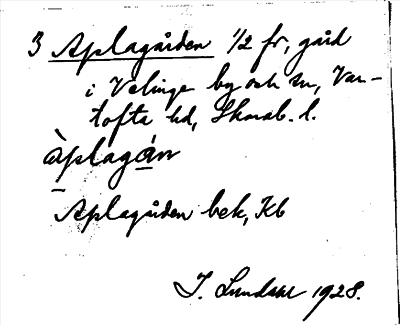 3 Aplagården 1/2 fr, gård
i Velinge by och sn, Var-
tofta hd, Skarab. l.
Àplagán
Aplagården bek, Kb
I. Lundahl 1928.